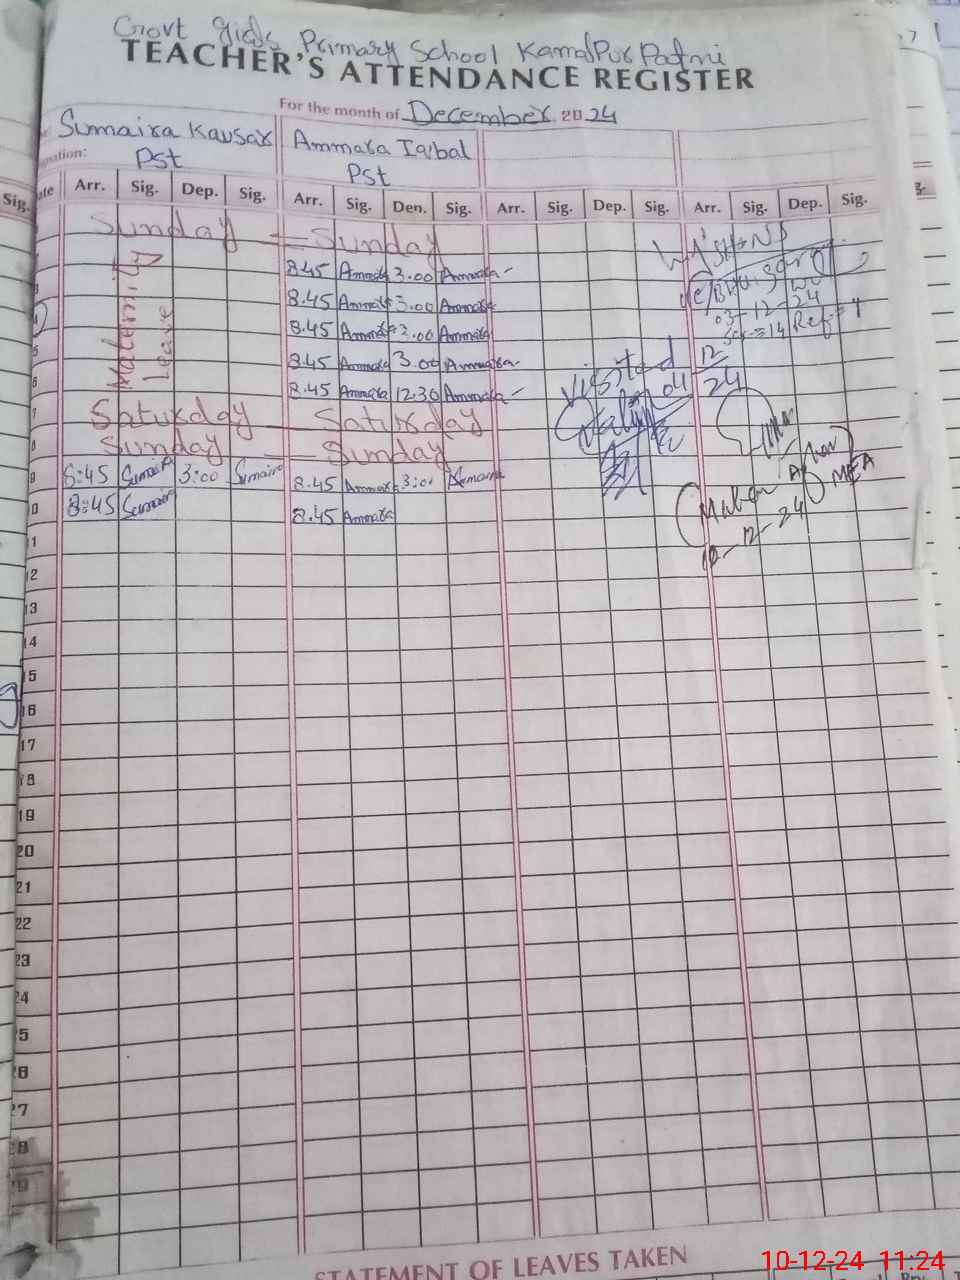 Govt Girls Primary School KamalPur Patni
TEACHER'S ATTENDANCE REGISTER
For the month of December 2024
Sumaira Kausar Ammara Iqbal
nation: Pst Pst
Sig. ate Arr. Sig. Dep. Sig. Arr. Sig. Den. Sig. Arr. Sig. Dep. Sig. Arr. Sig. Dep. Sig.
Sunday — Sunday
Maternity Leave
8.45 Ammara 3.00 Ammara
3 8.45 Ammara 3.00 Ammara
4 8.45 Ammara 3.00 Ammara
5 8.45 Ammara 3.00 Ammara
6 8.45 Ammara 12.30 Ammara
7 Saturday — Saturday
8 Sunday — Sunday
9 8:45 Sumaira 3:00 Sumaira 8.45 Ammara 3:00
0 8:45 Sumaira 8.45 Ammara
03-12-24
Visited
04 12/24
MEA
10-12-24
1
12
13
14
15
16
17
18
19
20
21
22
23
24
25
26
27
28
STATEMENT OF LEAVES TAKEN
10-12-24 11:24